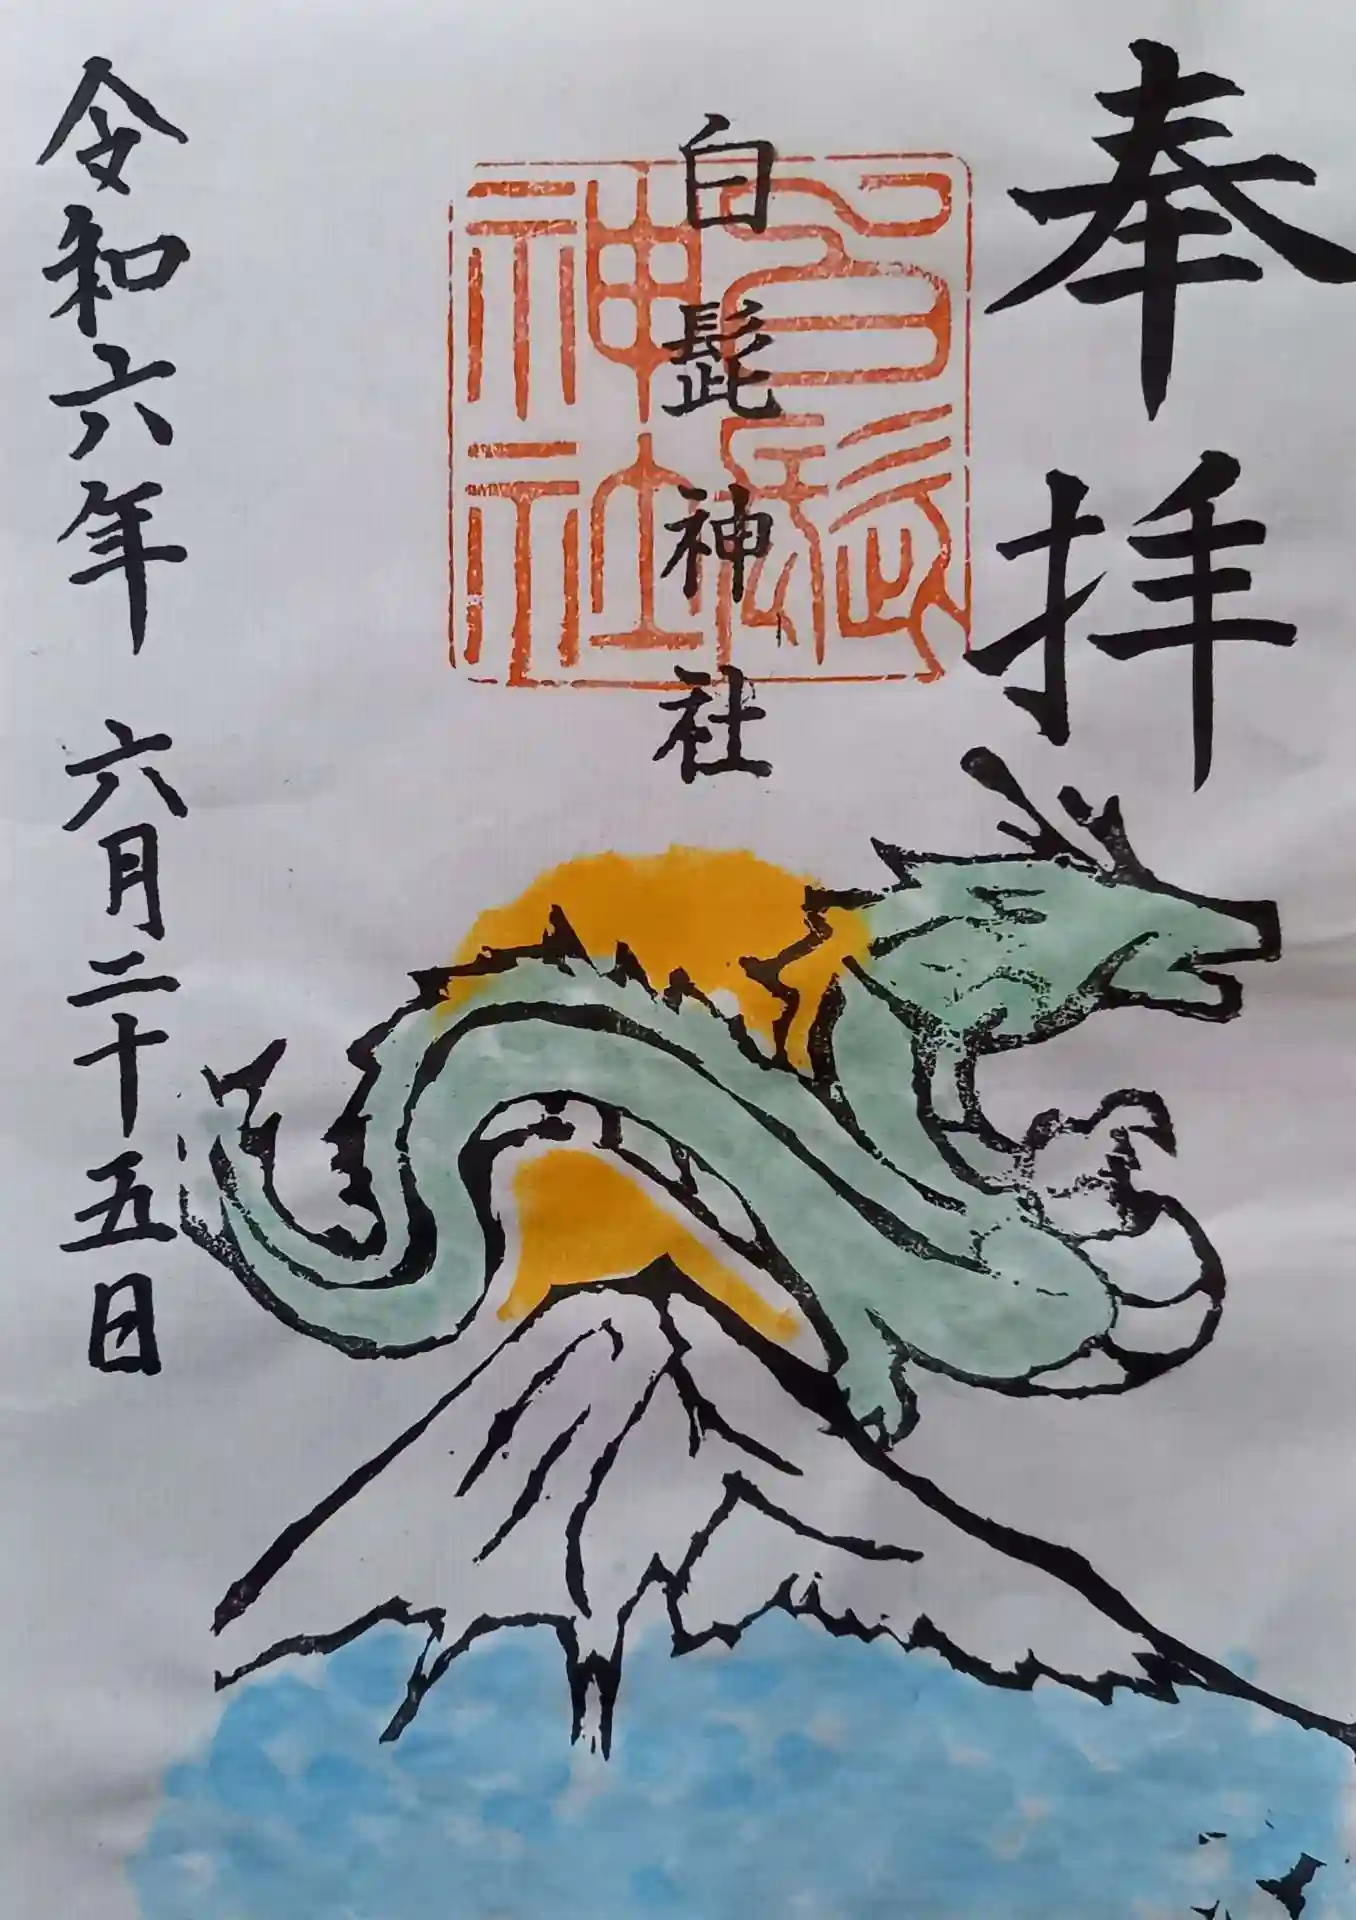 奉拝
白髭神社
白髭神社
令和六年 六月二十五日